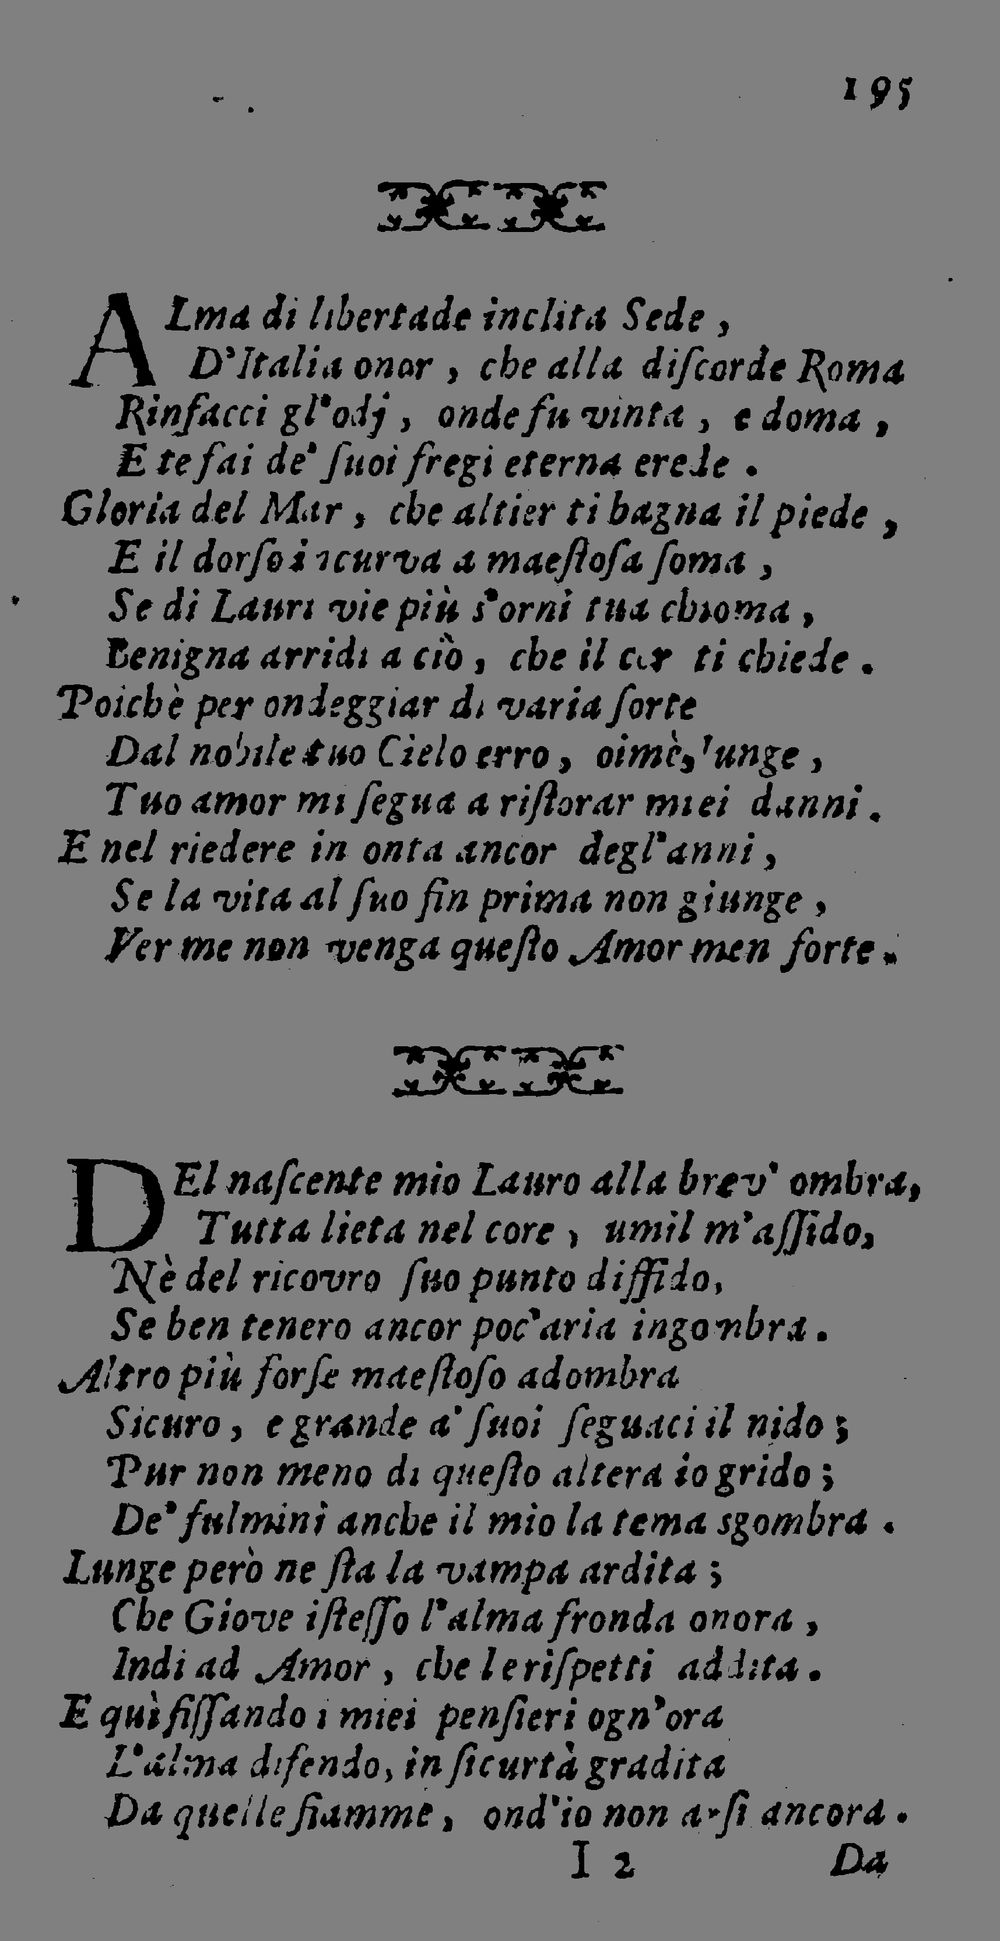 195
ALma di libertade inclita Sede ,
D'Italia onor , che alla diſcorde Roma
Rinfacci gl'odj , onde fu vinta , e doma ,
E te fai de' ſuoi fregi eterna erede .
Gloria del Mar , che altier ti bagna il piede ,
E il dorſo incurva a maeſtoſa ſoma ,
Se di Lauri vie più s'orni tua chioma ,
Benigna arridi a ciò , che il cor ti chiede .
Poichè per ondeggiar di varia ſorte
Dal nobile tuo Cielo erro , oimè, lunge ,
Tuo amor mi ſegua a riſtorar miei danni .
E nel riedere in onta ancor degl'anni ,
Se la vita al ſuo fin prima non giunge ,
Ver me non venga queſto Amor men forte .
DEl naſcente mio Lauro alla brev' ombra,
Tutta lieta nel core , umil m'aſſido,
Nè del ricovro ſuo punto diffido,
Se ben tenero ancor poc'aria ingombra .
Altro più forſe maeſtoſo adombra
Sicuro , e grande a' ſuoi ſeguaci il nido ;
Pur non meno di queſto altera io grido ;
De' fulmini anche il mio la tema sgombra .
Lunge però ne ſta la vampa ardita ;
Che Giove iſteſſo l'alma fronda onora ,
Indi ad Amor , che le riſpetti addita .
E quì fiſſando i miei penſieri ogn'ora
L'alma difendo, in ſicurtà gradita
Da quelle fiamme , ond'io non arſi ancora .
I 2 Da